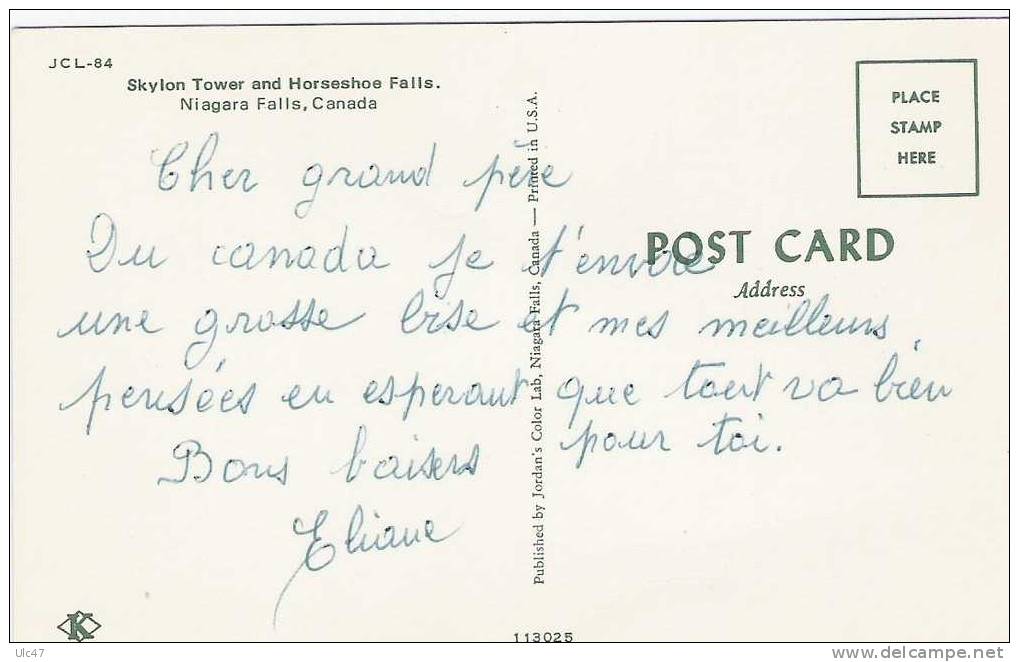 JCL-84
Skylon Tower and Horseshoe Falls.
Niagara Falls, Canada
PLACE
STAMP
HERE
POST CARD
Address
Cher grand père
Du canada je t'envoie
une grosse bise et mes meilleurs
pensées en esperant que tout va bien
pour toi.
Bons baisers
Eliane
Published by Jordan's Color Lab, Niagara Falls, Canada — Printed in U.S.A.
K
113025
Ulc47
www.delcampe.net